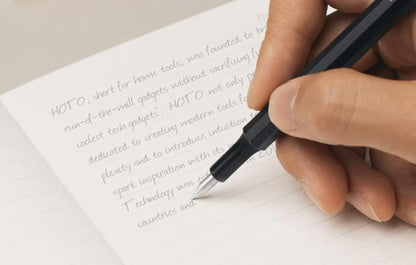 HOTO, short for home tools, was founded to br
run-of-the-mill gadgets without sacrificing fu
coolest tech gadgets. HOTO not only p
dedicated to creating modern tools fo
plexity and to introduce intuition
spark inspiration with its
Technology was
countries and